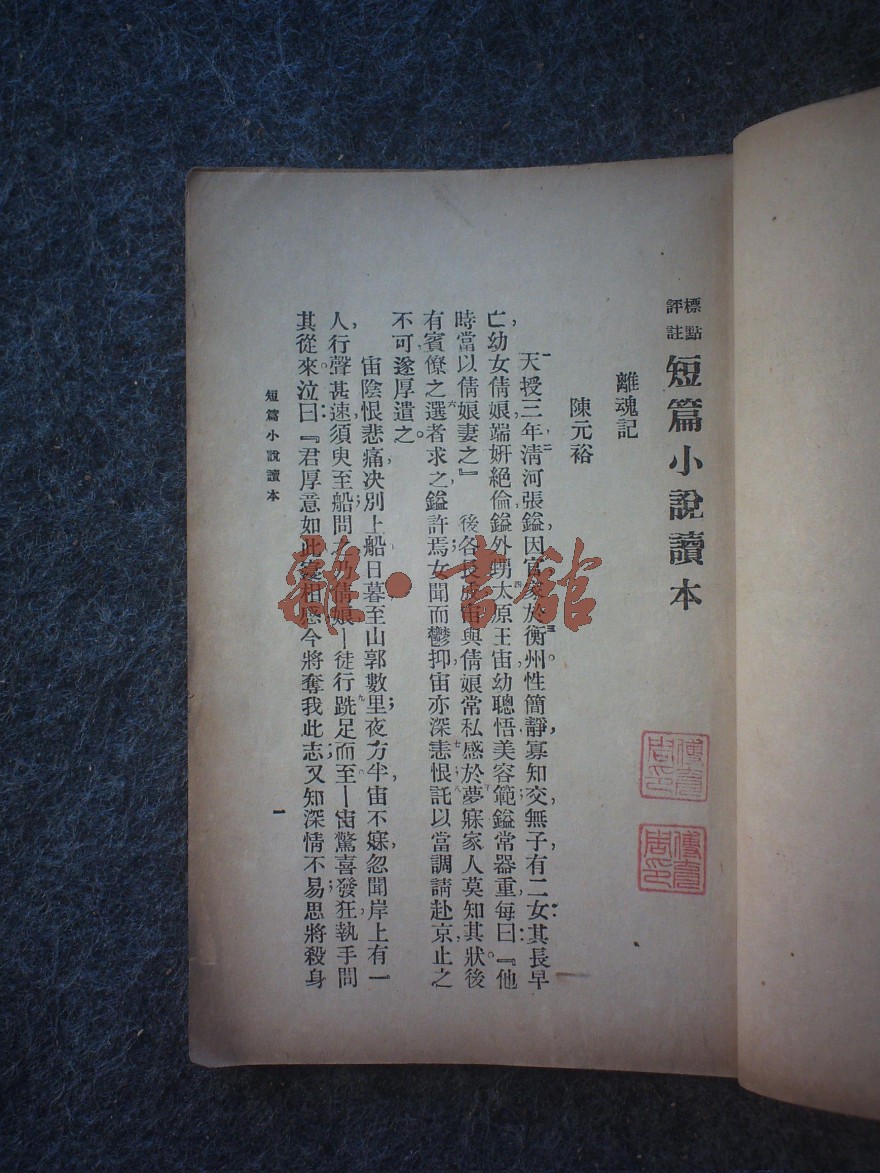 標點
評註
短篇小說讀本
離魂記
陳元裕
天授三年,清河張鎰,因官家於衡州。性簡靜,寡知交,無子,有二女:其長早
亡,幼女倩娘,端妍絕倫。鎰外甥太原王宙,幼聰悟,美容範,鎰常器重,每曰:『他
時當以倩娘妻之。』後各長成,宙與倩娘常私感於夢寐,家人莫知其狀。後
有賓僚之選者求之,鎰許焉;女聞而鬱抑,宙亦深恚恨,託以當調請赴京,止之
不可,遂厚遣之。
宙陰恨悲痛,決別上船。日暮,至山郭數里;夜方半,宙不寐,忽聞岸上有一
人,行聲甚速,須臾至船。問之,乃倩娘—徒行跣足而至—宙驚喜發狂,執手問
其從來。泣曰:『君厚意如此,寢相感。今將奪我此志,又知深情不易;思將殺身
短篇小說讀本
一
雜·書館